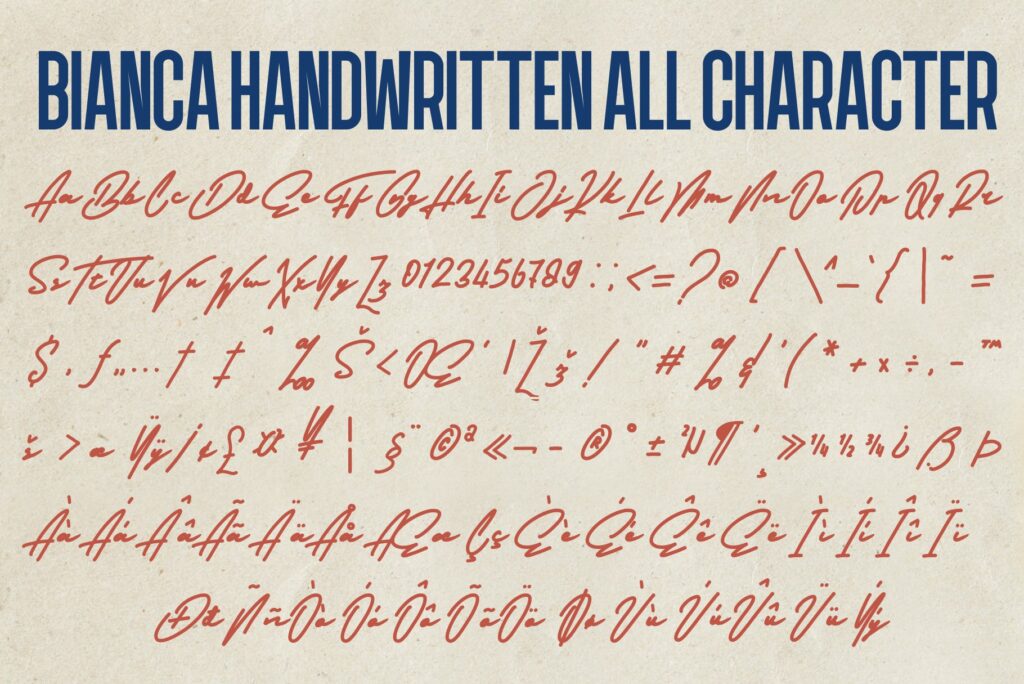 BIANCA HANDWRITTEN ALL CHARACTER
Aa Bb Cc Dd Ee Ff Gg Hh Ii Jj Kk Ll Mm Nn Oo Pp Qq Rr
Ss Tt Uu Vv Ww Xx Yy Zz 0123456789 : ; < = ? @ [ \ ^ _ ` { | ~ =
$ . ƒ „ … † ‡ ˆ ‰ Š < Œ ' | Ž ž ! " # % & ' ( * + × ÷ , - ™
ž > œ Ÿÿ ¡ ¢ £ ¤ ¥ ¦ § ¨ © ª « ¬ - ® ° ± ² µ ¶ ' ¸ » ¼ ½ ¾ ¿ ß Þ
Àà Áá Ââ Ãã Ää Åå Ææ Çç Èè Éé Êê Ëë Ìì Íí Îî Ïï
Đđ Ññ Òò Óó Ôô Õõ Öö Øø Ùù Úú Ûû Üü Ýý